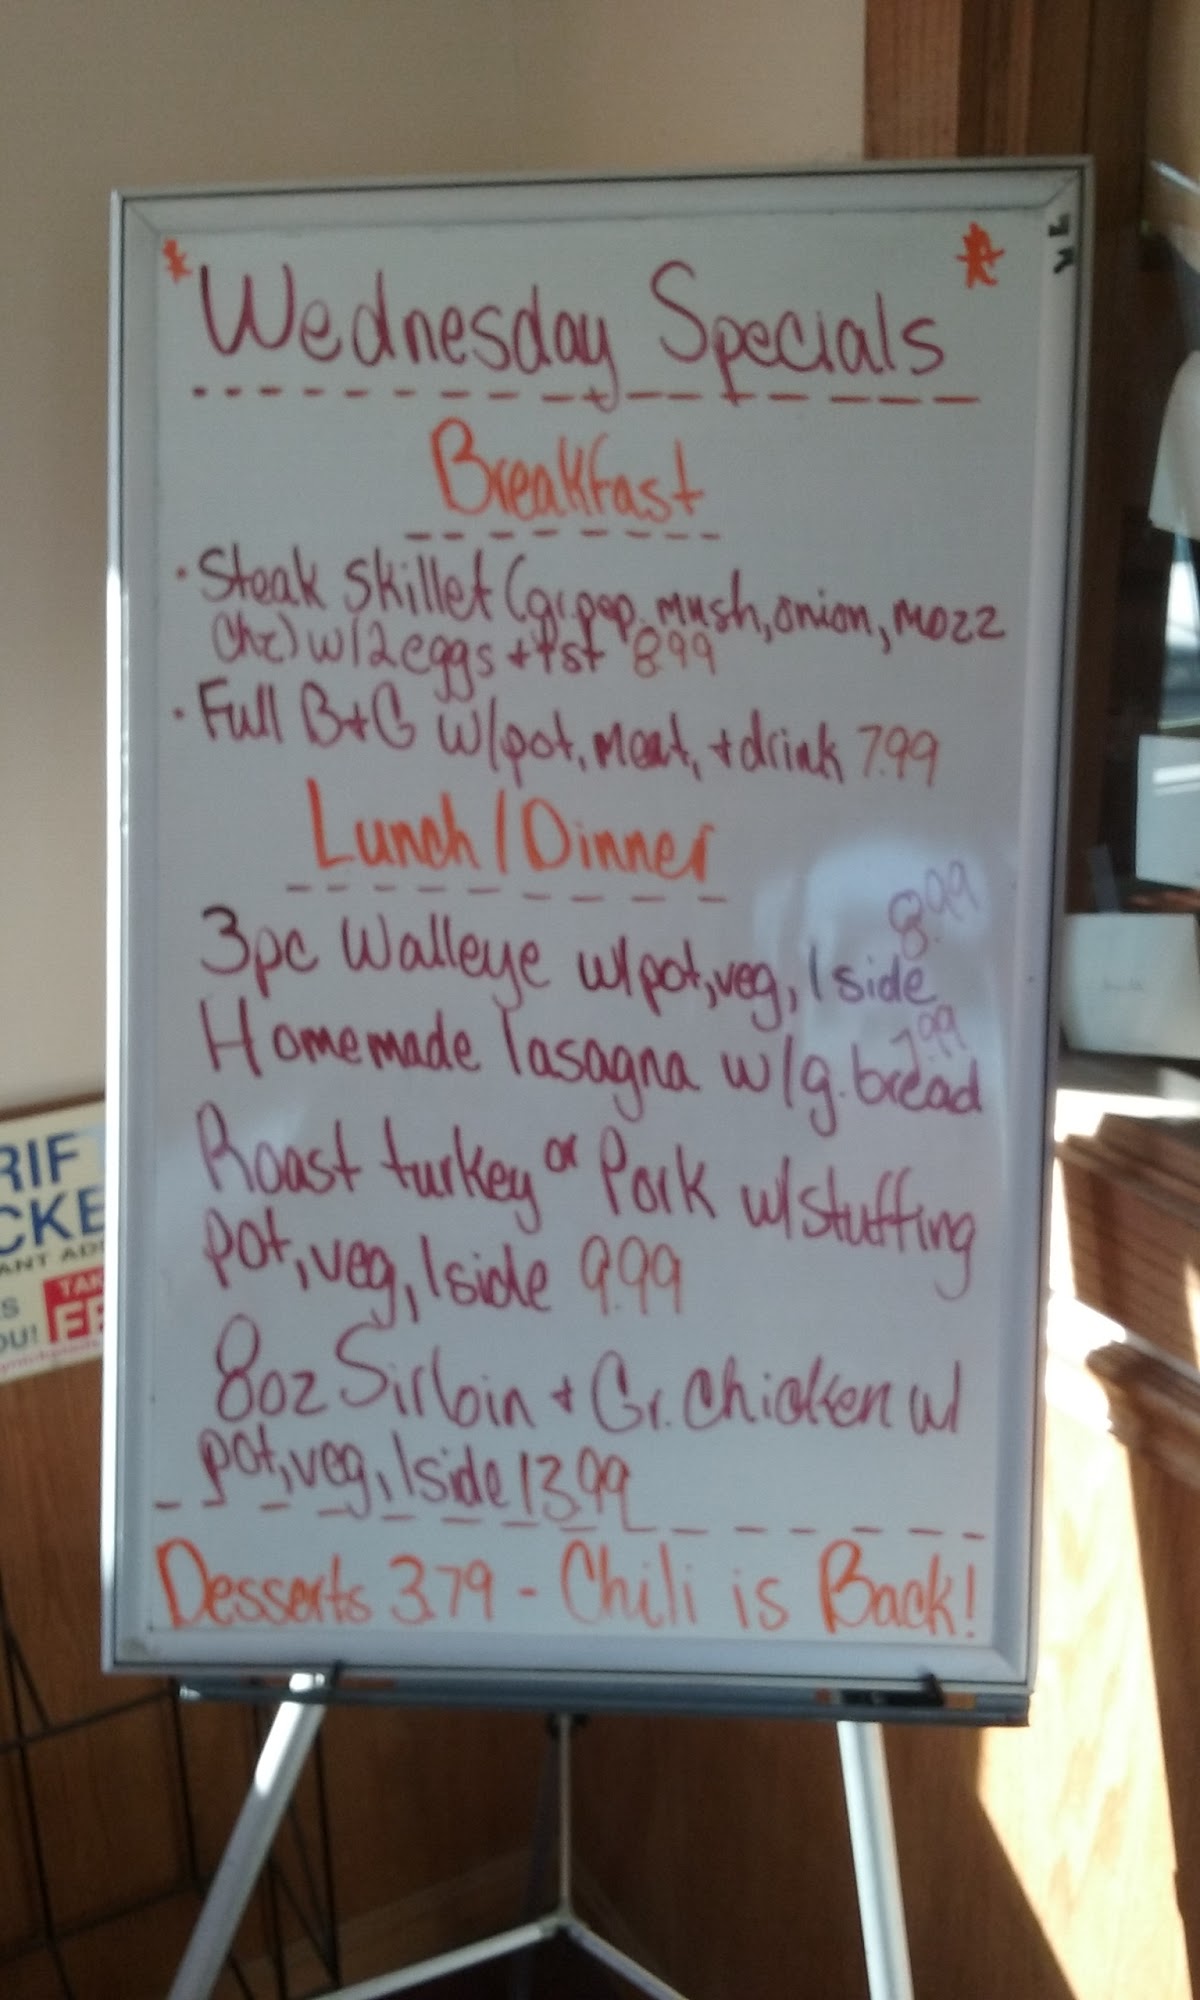 Wednesday Specials
Breakfast
· Steak Skillet (gr.pep, mush, onion, mozz
Chz) w/2 eggs + tst 8.99
· Full B+G w/pot, meat, + drink 7.99
Lunch/Dinner
8.99
3pc Walleye w/pot, veg, 1 side
7.99
Homemade lasagna w/g. bread
Roast turkey or Pork w/stuffing
pot, veg, 1 side 9.99
8oz Sirloin + Gr. Chicken w/
pot, veg, 1 side 13.99
Desserts 3.79 - Chili is Back!
RIF
CKE
ANT AD
S
OU!
TAK